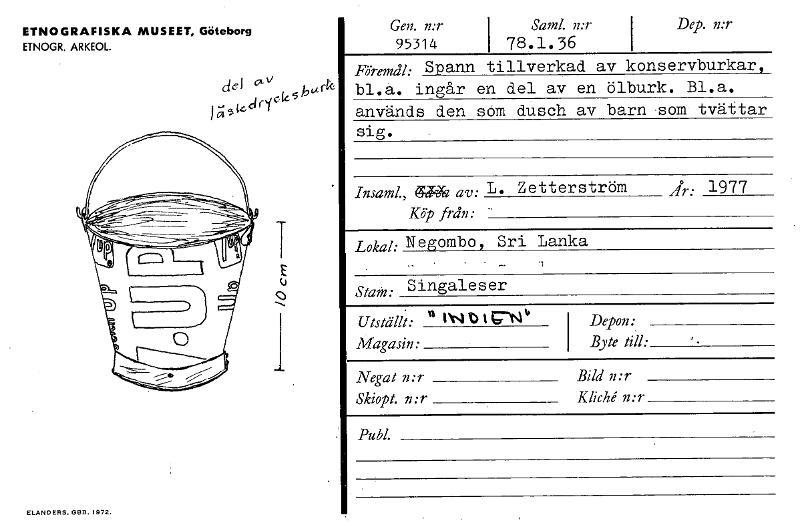 ETNOGRAFISKA MUSEET, Göteborg
ETNOGR. ARKEOL.
del av
läskedrycksburk
10 cm
ELANDERS, GBG. 1972.
Gen. n:r
95314
Saml. n:r
78.1.36
Dep. n:r
Föremål: Spann tillverkad av konservburkar,
bl.a. ingår en del av en ölburk. Bl.a.
används den som dusch av barn som tvättar
sig.
Insaml., Gåva av: L. Zetterström År: 1977
Köp från:
Lokal: Negombo, Sri Lanka
Stam: Singaleser
Utställt: "INDIEN" Depon:
Magasin: Byte till:
Negat n:r Bild n:r
Skiopt. n:r Kliché n:r
Publ.